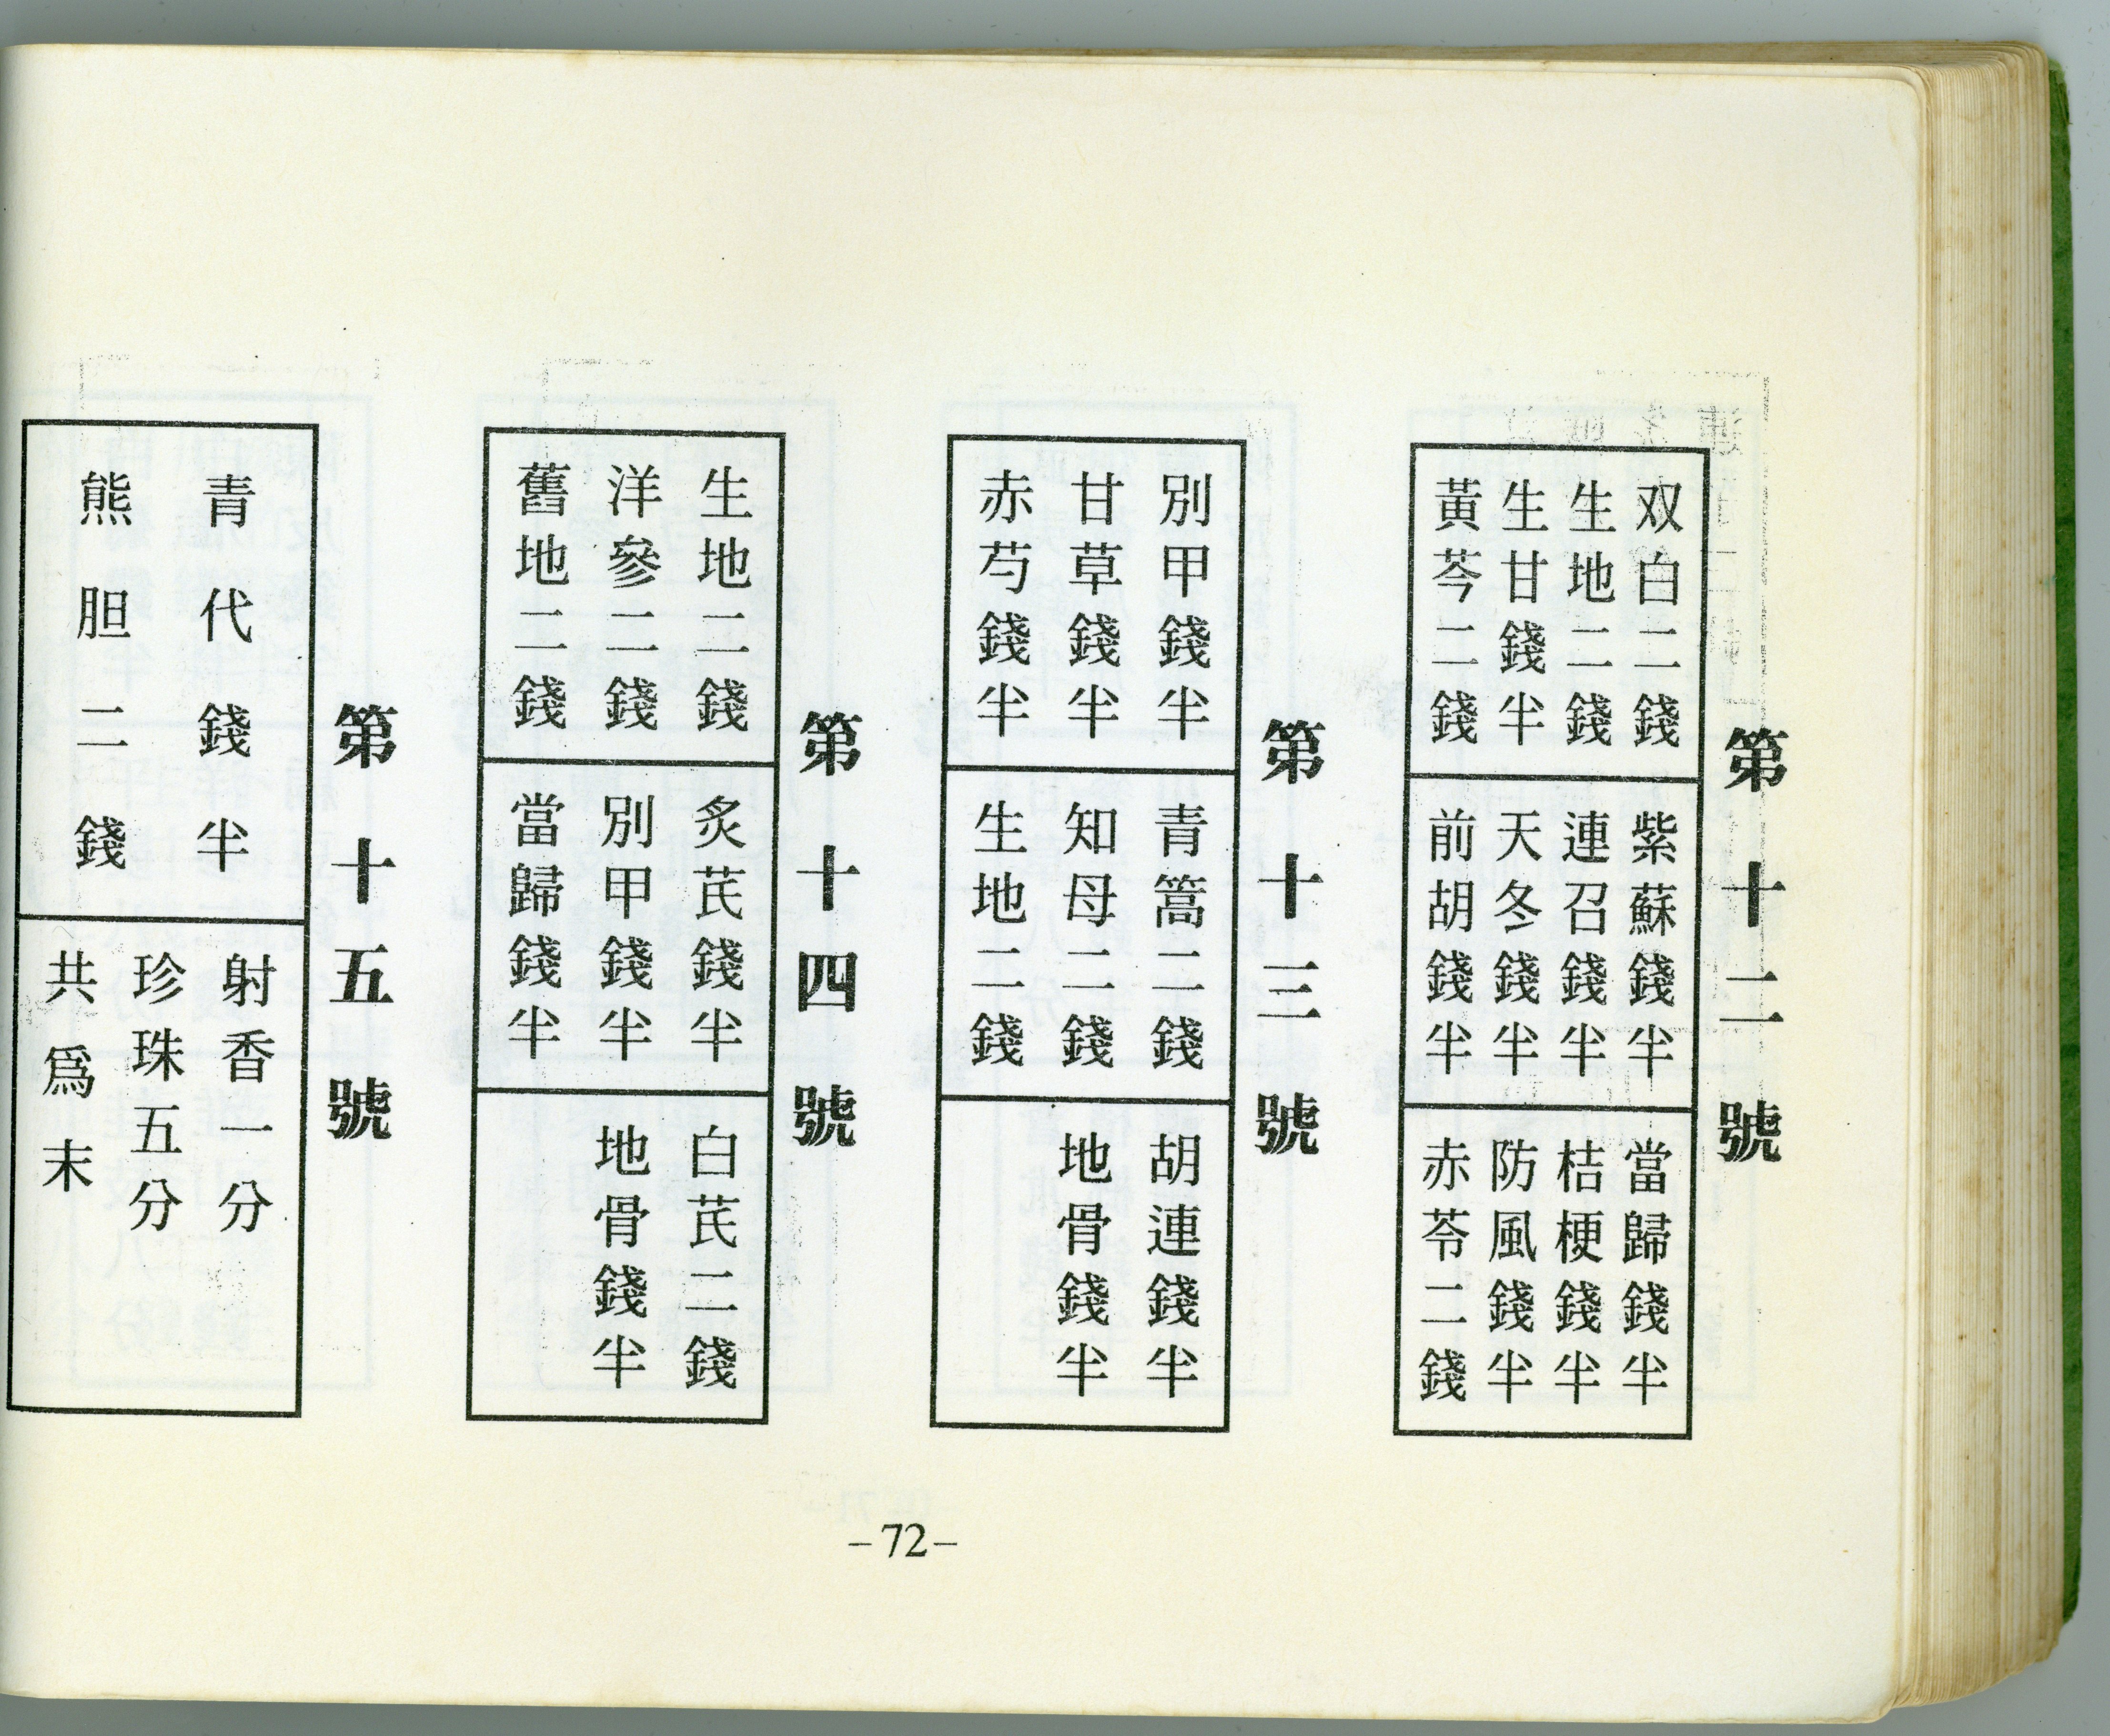 第十二號
双白二錢
生地二錢
生甘錢半
黃芩二錢
紫蘇錢半
連召錢半
天冬錢半
前胡錢半
當歸錢半
桔梗錢半
防風錢半
赤苓二錢
第十三號
別甲錢半
甘草錢半
赤芍錢半
青篙二錢
知母二錢
生地二錢
胡連錢半
地骨錢半
第十四號
生地二錢
洋參二錢
舊地二錢
炙芪錢半
別甲錢半
當歸錢半
白芪二錢
地骨錢半
第十五號
青代錢半
熊胆二錢
射香一分
珍珠五分
共爲末
–72–